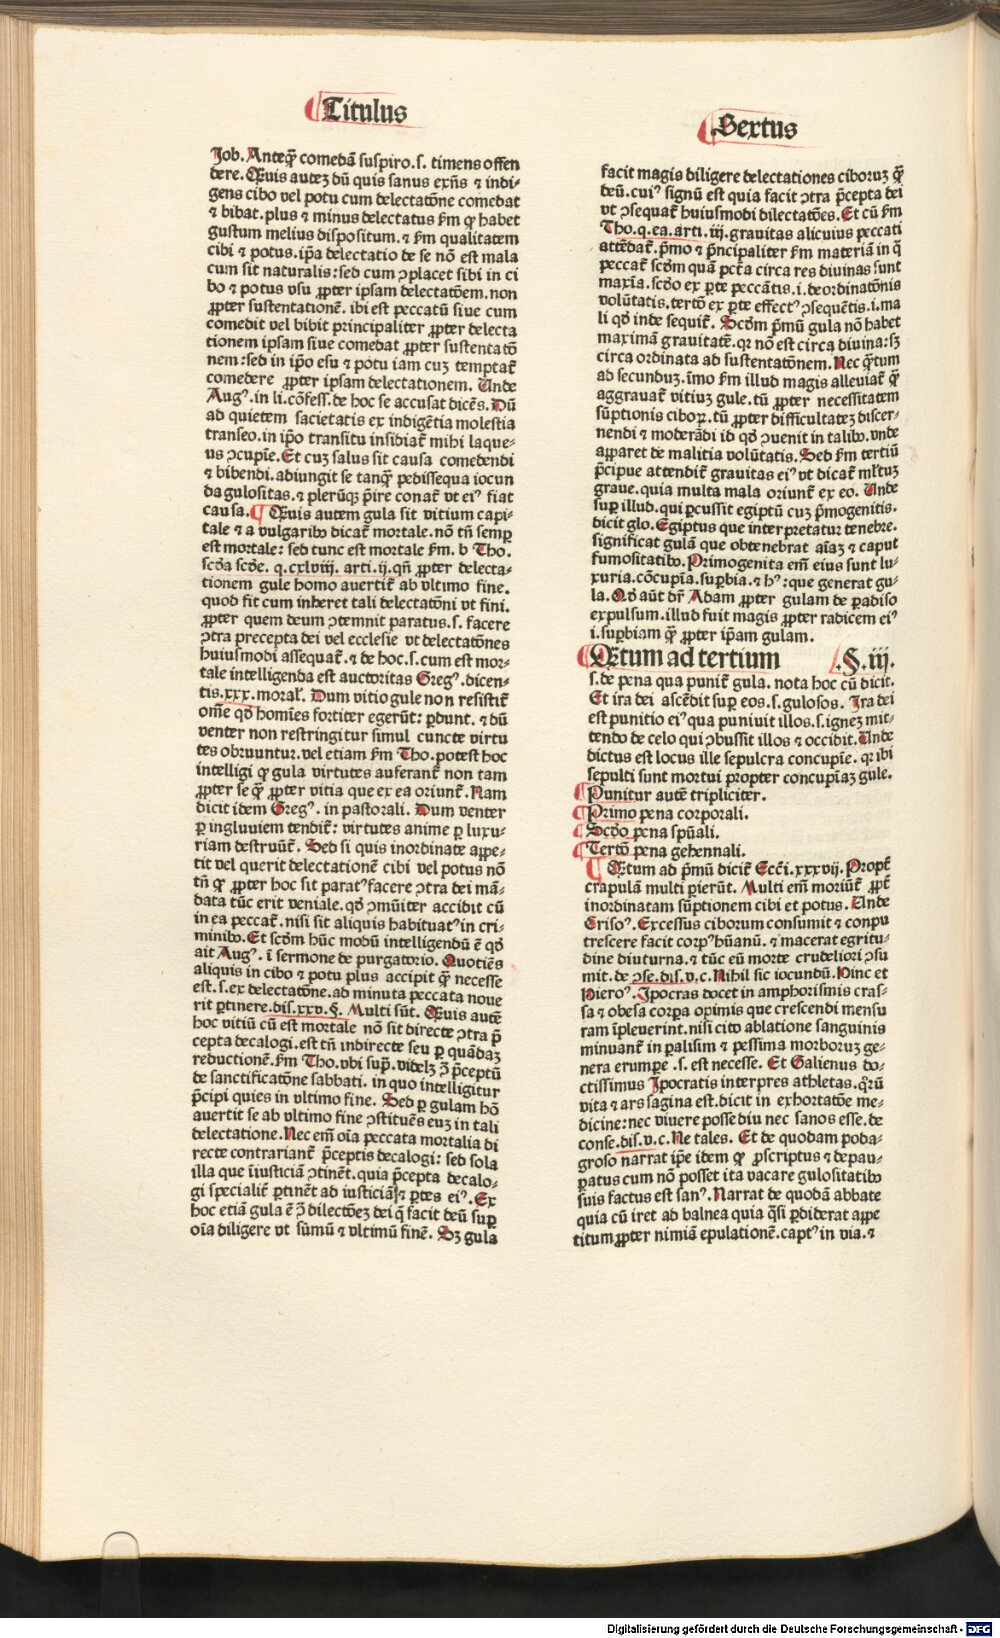 Titulus
Job. Anteq̃ comedã suspiro.s. timens offen
dere. Quis autez dũ quis sanus exñs ⁊ indi-
gens cibo vel potu cum delectatõne comedat
⁊ bibat.plus ⁊ minus delectatus ẜm ꝙ habet
gustum melius dispositum.⁊ ẜm qualitatem
cibi ⁊ potus.ip̃a delectatio de se nõ est mala
cum sit naturalis:sed cum ꝯplacet sibi in ci
bo ⁊ potus vsu ꝓpter ipsam delectatõem.non
ꝓpter sustentationẽ. ibi est peccatũ siue cum
comedit vel bibit principaliter ꝓpter delecta
tionem ipsam siue comedat ꝓpter sustentatõ
nem:sed in ip̃o esu ⁊ potu iam cuz temptat̃
comedere ꝓpter ipsam delectationem. Unde
Augꝰ.in li.cõfess.de hoc se accusat dicẽs. Dũ
ad quietem sacietatis ex indigẽtia molestia
transeo.in ip̃o transitu insidiat̃ mihi laque-
us ꝯcupĩe.Et cuz salus sit causa comedendi
⁊ bibendi.adiungit se tanq̃ pedissequa iocun
da gulositas.⁊ plerũqꝫ p̃ire conat̃ vt eiꝰ fiat
causa.¶ Quis autem gula sit vitium capi-
tale ⁊ a vulgaribꝰ dicat̃ mortale.nõ tñ semꝑ
est mortale: sed tunc est mortale ẜm. b Tho.
scda scde. q.cxlviii. arti.ij.qñ ꝓpter delecta-
tionem gule homo auertit̃ ab vltimo fine.
quod fit cum inheret tali delectatõni vt fini.
ꝓpter quem deum ꝯtemnit paratus.s. facere
ꝯtra precepta dei vel ecclesie vt delectatõnes
huiusmodi assequat̃.⁊ de hoc.s.cum est mor-
tale intelligenda est auctoritas Gregꝰ.dicen-
tis.xxx.moral̃. Dum vitio gule non resistit̃
om̃e qd homĩes fortiter egerũt: ꝑdunt. ⁊ dũ
venter non restringitur simul cuncte virtu
tes obruuntur.vel etiam ẜm Tho.potest hoc
intelligi ꝙ gula virtutes auferant̃ non tam
ꝓpter se q̃ ꝓpter vitia que ex ea oriunt̃. Nam
dicit idem Gregꝰ. in pastorali. Dum venter
ꝑ ingluuiem tendit̃: virtutes anime ꝑ luxu-
riam destruũt̃. Sed si quis inordinate appe-
tit vel querit delectationẽ cibi vel potus nõ
tñ ꝙ ꝓpter hoc sit paratꝰ facere ꝯtra dei mã-
data tũc erit veniale.qd ꝯmũiter accidit cũ
in ea peccat̃.nisi sit aliquis habituatꝰ in cri-
minibꝰ.Et scdm hũc modũ intelligendũ ẽ qd
ait Augꝰ. ĩ sermone de purgatorio. Quotiẽs
aliquis in cibo ⁊ potu plus accipit q̃ necesse
est.s.ex delectatõne.ad minuta peccata noue
rit ꝑtinere.dis.xxv.§. Multi sũt. Quis autẽ
hoc vitiũ cũ est mortale nõ sit directe ꝯtra p̃
cepta decalogi.est tñ indirecte seu ꝑ quãdaz
reductionẽ.ẜm Tho.vbi sup̃.videlꝫ ꝯ̃ p̃ceptũ
de sanctificatõne sabbati. in quo intelligitur
p̃cipi quies in vltimo fine. Sed ꝑ gulam hõ
auertit se ab vltimo fine ꝯstituẽs euz in tali
delectatione.Nec em̃ oĩa peccata mortalia di
recte contrariant̃ p̃ceptis decalogi: sed sola
illa que ĩiusticiã ꝯtinẽt.quia p̃cepta decalo-
gi specialit̃ ꝑtinẽt ad iusticiã ⁊ ꝑtes eiꝰ. Ex
hoc etiã gula ẽ ꝯ̃ dilectõez dei q̃ facit deũ suꝑ
oĩa diligere vt sũmũ ⁊ vltimũ finẽ. Sꝫ gula
Sextus
facit magis diligere delectationes ciborum q̃
deũ.cuiꝰ signũ est quia facit ꝯtra p̃cepta dei
vt ꝯsequat̃ huiusmodi dilectatões. Et cũ ẜm
Tho.q.ea.arti.iij.grauitas alicuius peccati
attẽdat̃.p̃mo ⁊ p̃ncipaliter ẜm materiã in q̃
peccat̃ scdm quã pctã circa res diuinas sunt
maxĩa.scdo ex ꝑte peccãtis.i.deordinatõnis
volũtatis.tertõ ex ꝑte effectꝰ ꝯsequẽtis.i.ma
li qd inde sequit̃. Scdm p̃mũ gula nõ habet
maximã grauitatẽ.qꝛ nõ est circa diuina:sꝫ
circa ordinata ad sustentatõnem. Nec q̃tum
ad secunduz.ĩmo ẜm illud magis alleuiat̃ q̃
aggrauat̃ vitiuz gule.tũ ꝓpter necessitatem
sũptionis ciboꝝ.tũ ꝓpter difficultatez discer-
nendi ⁊ moderãdi id qd ꝯuenit in talibꝰ.vnde
apparet de malitia volũtatis. Sed ẜm tertiũ
p̃cipue attendit̃ grauitas eiꝰ vt dicat̃ ml̃tuz
graue.quia multa mala oriunt̃ ex eo. Unde
suꝑ illud.qui ꝑcussit egiptũ cuz p̃mogenitis.
dicit glo. Egiptus que interpretatur tenebre.
significat gulã que obtenebrat aĩaz ⁊ caput
fumositatibꝰ. Primogenita em̃ eius sunt lu-
xuria.cõcupĩa.suꝑbia.⁊ hꝰ:que generat gu-
la. Qd aũt dr̃ Adam ꝓpter gulam de ꝑadiso
expulsum.illud fuit magis ꝓpter radicem eiꝰ
i.suꝑbiam q̃ ꝓpter ip̃am gulam.
¶Qtum ad tertium .§.iij.
s.de pena qua punit̃ gula. nota hoc cũ dicit.
Et ira dei ascẽdit suꝑ eos.s.gulosos. Ira dei
est punitio eiꝰ qua puniuit illos.s.ignez mit-
tendo de celo qui ꝯbussit illos ⁊ occidit. Unde
dictus est locus ille sepulcra concupĩe. qꝛ ibi
sepulti sunt mortui propter concupĩaz gule.
¶Punitur autẽ tripliciter.
¶Primo pena corporali.
¶Scdo pena spũali.
¶Tertõ pena gehennali.
¶ Qtum ad p̃mũ dicit̃ Ecci.xxxvij. Propt̃
crapulã multi ꝑierũt. Multi em̃ moriũt̃ ꝓpt̃
inordinatam sũptionem cibi et potus. Unde
Crisoꝰ. Excessus ciborum consumit ⁊ conpu
trescere facit corpꝰ hũanũ.⁊ macerat egritu-
dine diuturna.⁊ tũc eũ morte crudeliori ꝯsu
mit.de ꝯse.dis.v.c.Nihil sic iocundũ. Hinc et
Hieroꝰ. Ipocras docet in amphorismis cras-
sa ⁊ obesa corpa opimis que crescendi mensu
ram ĩpleuerint.nisi cito ablatione sanguinis
minuant̃ in ꝑalisim ⁊ pessima morboruz ge-
nera erumpe .s.est necesse. Et Galienus do-
ctissimus Ipocratis interpres athletas.qꝛũ
vita ⁊ ars sagina est.dicit in exhortatõe me-
dicine:nec viuere posse diu nec sanos esse.de
conse.dis.v.c.Ne tales. Et de quodam poda-
groso narrat ip̃e idem ꝙ ꝓscriptus ⁊ depau-
ꝑatus cum nõ posset ita vacare gulositatibꝰ
suis factus est sanꝰ.Narrat de quodã abbate
quia cũ iret ad balnea quia q̃si ꝑdiderat appe
titum ꝓpter nimiã epulationẽ.captꝰ in via.⁊
Digitalisierung gefördert durch die Deutsche Forschungsgemeinschaft - DFG